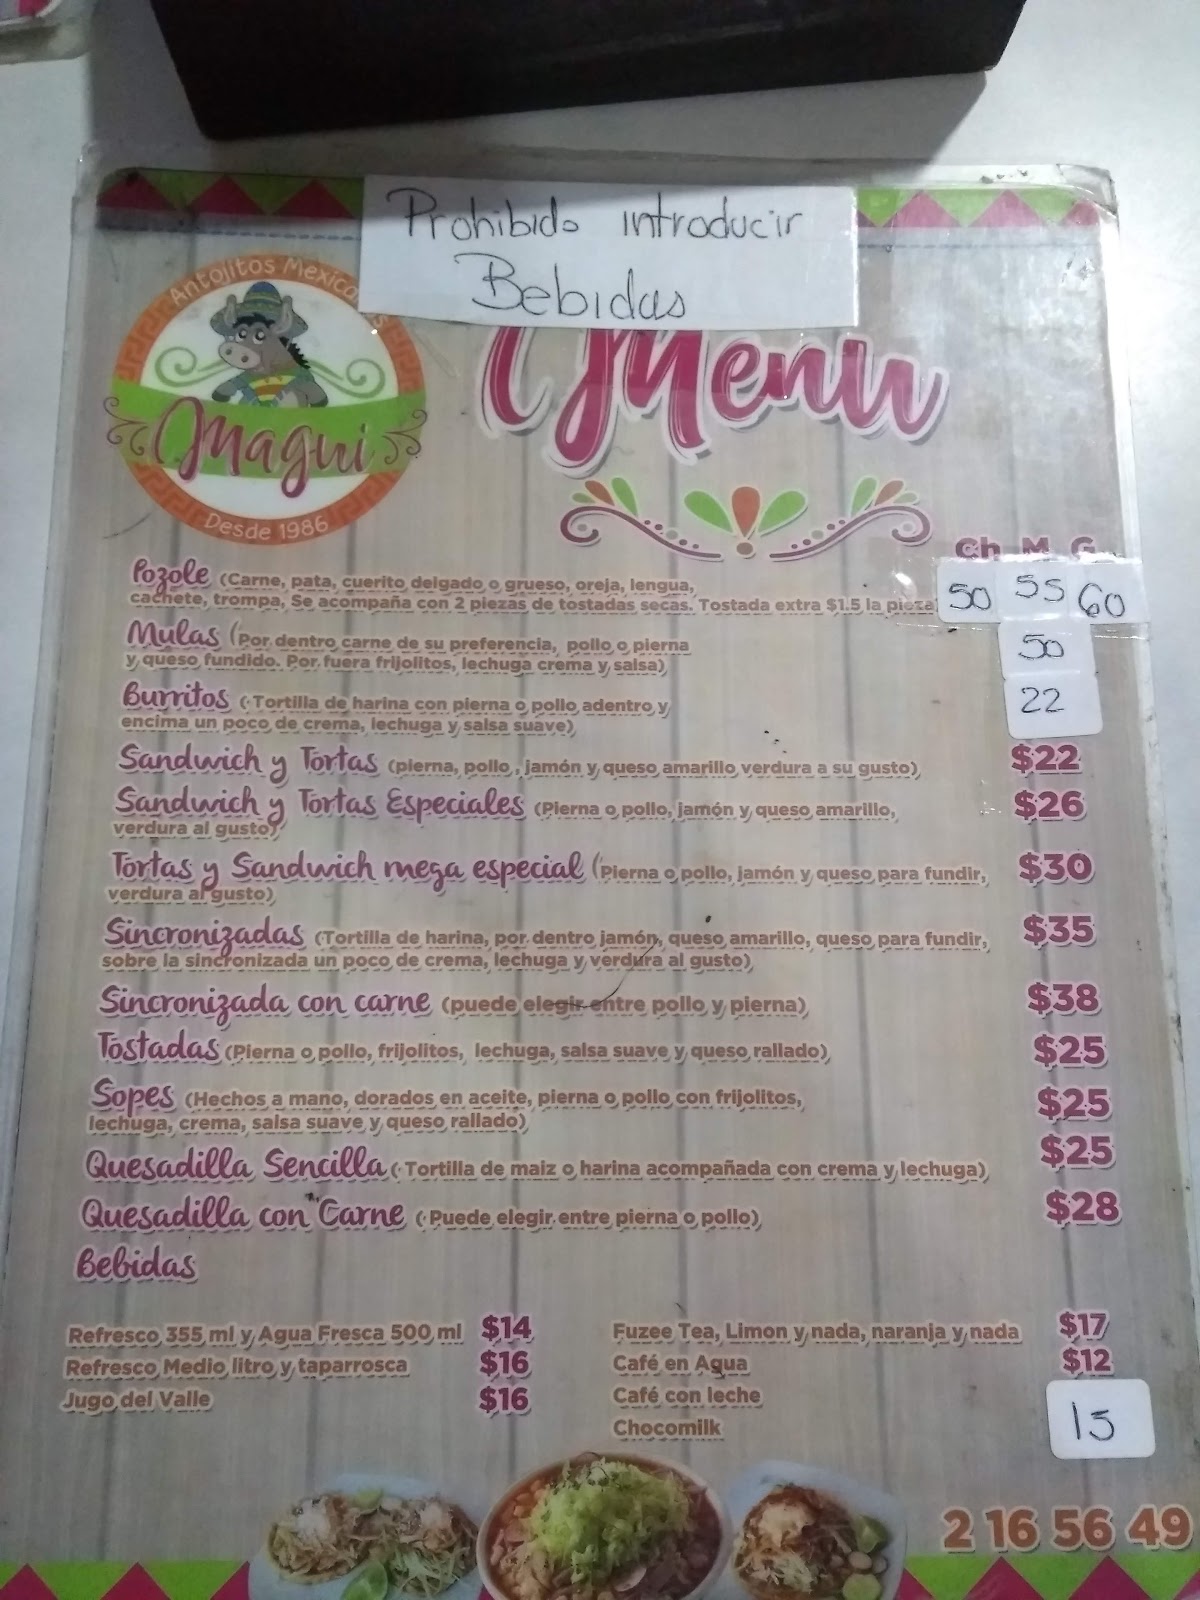 Prohibido introducir
Bebidas
Antojitos Mexica s
Magui
Desde 1986
Menu
Ch M G
Pozole (Carne, pata, cuerito delgado o grueso, oreja, lengua,
cachete, trompa, Se acompaña con 2 piezas de tostadas secas. Tostada extra $1.5 la pieza) 50 55 60
Mulas (Por dentro carne de su preferencia, pollo o pierna 50
y queso fundido. Por fuera frijolitos, lechuga crema y salsa)
Burritos (Tortilla de harina con pierna o pollo adentro y 22
encima un poco de crema, lechuga y salsa suave)
Sandwich y Tortas (pierna, pollo, jamón y queso amarillo verdura a su gusto) $22
Sandwich y Tortas Especiales (Pierna o pollo, jamón y queso amarillo, $26
verdura al gusto)
Tortas y Sandwich mega especial (Pierna o pollo, jamón y queso para fundir, $30
verdura al gusto)
Sincronizadas (Tortilla de harina, por dentro jamón, queso amarillo, queso para fundir, $35
sobre la sincronizada un poco de crema, lechuga y verdura al gusto)
Sincronizada con carne (puede elegir entre pollo y pierna) $38
Tostadas (Pierna o pollo, frijolitos, lechuga, salsa suave y queso rallado) $25
Sopes (Hechos a mano, dorados en aceite, pierna o pollo con frijolitos, $25
lechuga, crema, salsa suave y queso rallado)
Quesadilla Sencilla (Tortilla de maiz o harina acompañada con crema y lechuga) $25
Quesadilla con Carne (Puede elegir entre pierna o pollo) $28
Bebidas
Refresco 355 ml y Agua Fresca 500 ml $14
Refresco Medio litro y taparrosca $16
Jugo del Valle $16
Fuzee Tea, Limon y nada, naranja y nada $17
Café en Agua $12
Café con leche
Chocomilk 15
2 16 56 49